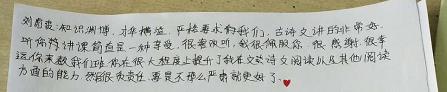 刘霞霞:知识渊博,才华横溢,严格要求我们,古诗文讲的非常好
听你的讲课简直是一种享受,很喜欢听,我很佩服你,很感谢,很幸
运你来教我们班,你在很大程度上提升了我在文言诗文阅读以及其他阅读
方面的能力,然后很负责任,要是不那么严肃就更好了.♥